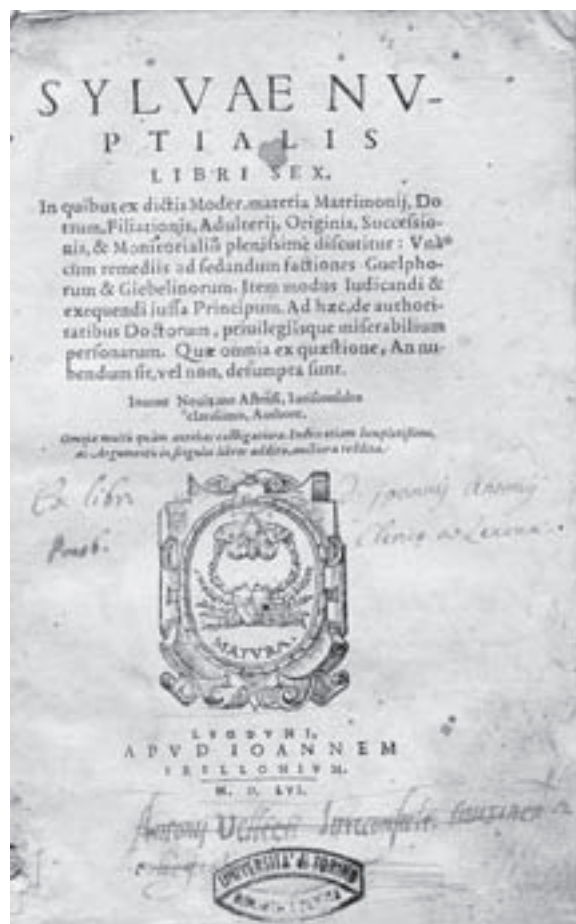 SYLVAE NV-
PTIALIS
LIBRI SEX.
In quibus ex dictis Moder. materia Matrimonij, Do
tium, Filiationis, Adulterij, Originis, Successio-
nis, & Monitorialiũ plenissimè discutitur: Vnà
cum remediis ad sedandum factiones Guelpho-
rum & Giebelinorum. Item modus Iudicandi &
exequendi iussa Principum. Ad hæc, de authori-
tatibus Doctorum, priuilegiisque miserabilium
personarum. Quæ omnia ex quæstione, An nu-
bendum sit, vel non, desumpta sunt.
Ioanne Neuizano Astensi, Iurisconsulto
clarissimo, Authore.
Omnia multò quàm antehac castigatiora. Indice etiam locupletissimo,
ac Argumentis in singulos libros additis, auctiora reddita.
Ex libri Joannij Antonij
MATVRA.
LVGDVNI,
APVD IOANNEM
FRELLONIVM.
M. D. LVI.
Antonij
UNIVERSITÀ di TORINO